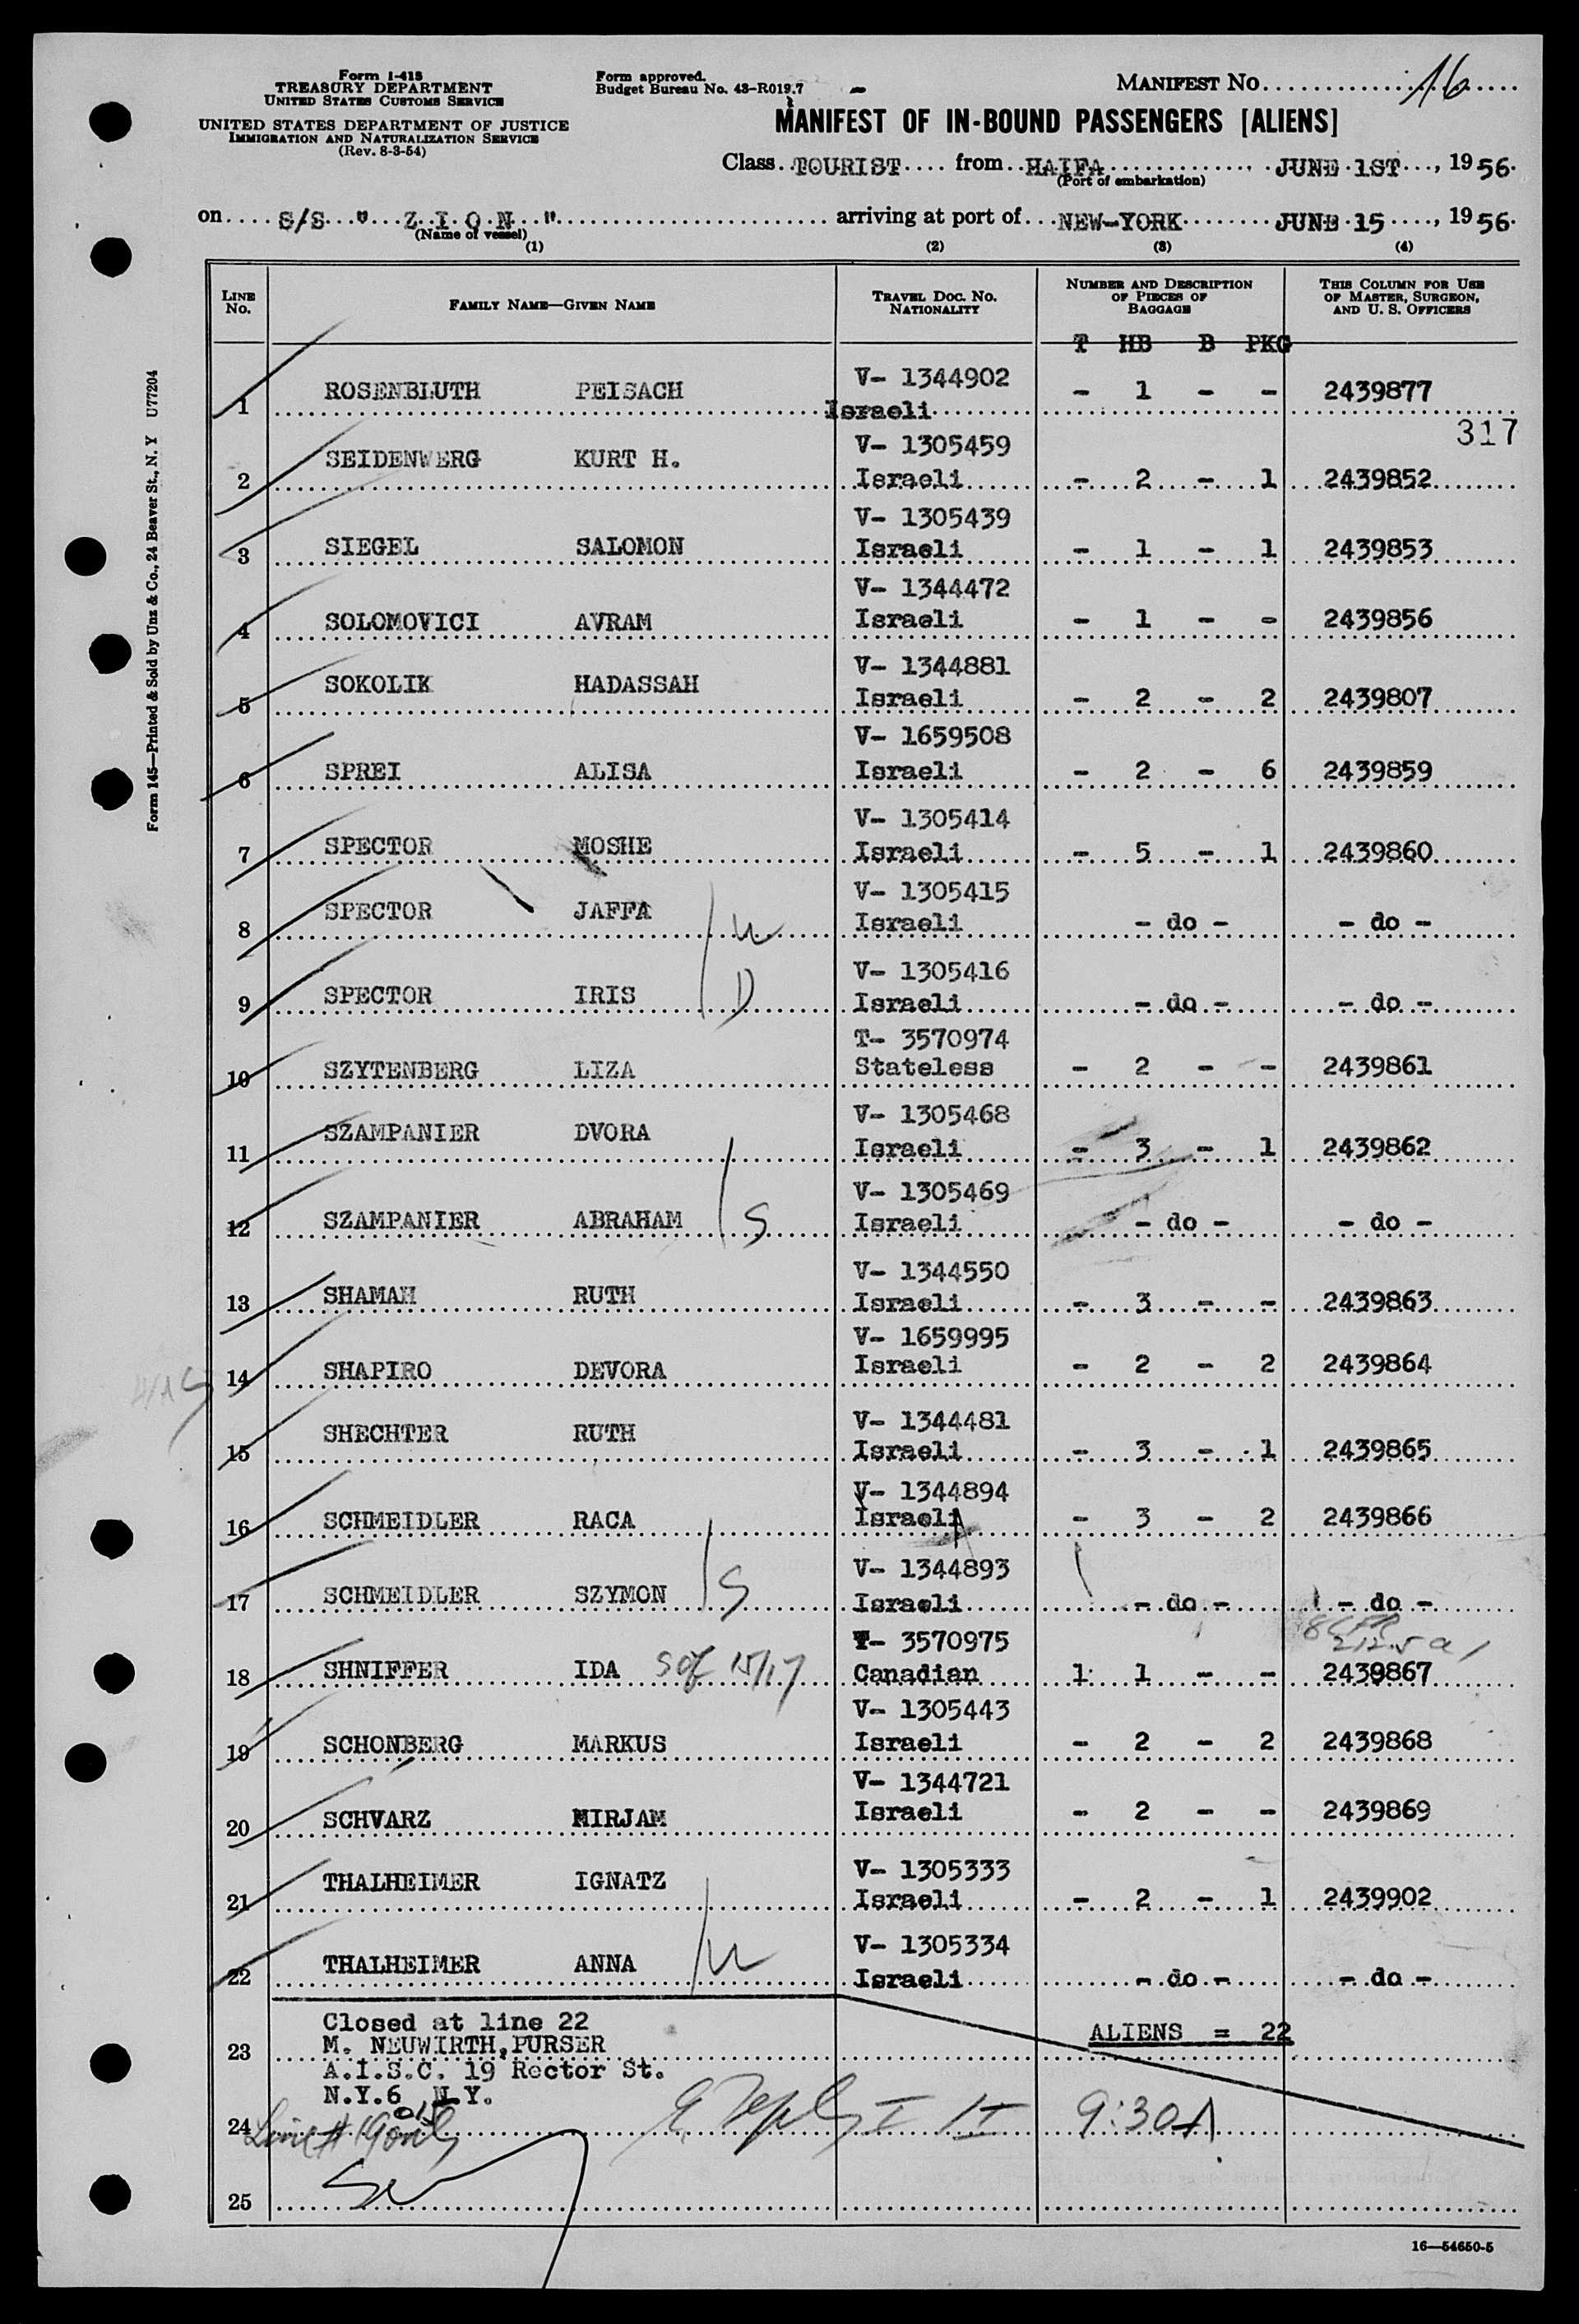 Form I-418
TREASURY DEPARTMENT
UNITED STATES CUSTOMS SERVICE
UNITED STATES DEPARTMENT OF JUSTICE
IMMIGRATION AND NATURALIZATION SERVICE
(Rev. 8-3-54)
Form approved.
Budget Bureau No. 43-R019.7
MANIFEST NO. 16
MANIFEST OF IN-BOUND PASSENGERS [ALIENS]
Class TOURIST from HAIFA JUNE 1ST, 1956.
(Port of embarkation)
on S/S " Z I O N " arriving at port of NEW-YORK JUNE 15, 1956.
(Name of vessel)
(1) (2) (3) (4)
LINE NO. FAMILY NAME—GIVEN NAME TRAVEL DOC. NO. NATIONALITY NUMBER AND DESCRIPTION OF PIECES OF BAGGAGE THIS COLUMN FOR USE OF MASTER, SURGEON, AND U. S. OFFICERS
T HB B PKG
V- 1344902
1 ROSENBLUTH PEISACH Israeli - 1 - - 2439877
317
V- 1305459
2 SEIDENWERG KURT H. Israeli - 2 - 1 2439852
V- 1305439
3 SIEGEL SALOMON Israeli - 1 - 1 2439853
V- 1344472
4 SOLOMOVICI AVRAM Israeli - 1 - - 2439856
V- 1344881
5 SOKOLIK HADASSAH Israeli - 2 - 2 2439807
V- 1659508
6 SPREI ALISA Israeli - 2 - 6 2439859
V- 1305414
7 SPECTOR MOSHE Israeli - 5 - 1 2439860
V- 1305415
8 SPECTOR JAFFA W Israeli - do - - do -
V- 1305416
9 SPECTOR IRIS D Israeli - do - - do -
T- 3570974
10 SZYTENBERG LIZA Stateless - 2 - - 2439861
V- 1305468
11 SZAMPANIER DVORA Israeli - 3 - 1 2439862
V- 1305469
12 SZAMPANIER ABRAHAM S Israeli - do - - do -
V- 1344550
13 SHAMAH RUTH Israeli - 3 - - 2439863
V- 1659995
14 SHAPIRO DEVORA Israeli - 2 - 2 2439864
V- 1344481
15 SHECHTER RUTH Israeli - 3 - 1 2439865
V- 1344894
16 SCHMEIDLER RACA Israeli - 3 - 2 2439866
V- 1344893
17 SCHMEIDLER SZYMON S Israeli - do - - do -
8 CFR
212.5 a
T- 3570975
18 SHNIFFER IDA Canadian 1 1 - - 2439867
V- 1305443
19 SCHONBERG MARKUS Israeli - 2 - 2 2439868
V- 1344721
20 SCHVARZ MIRJAM Israeli - 2 - - 2439869
V- 1305333
21 THALHEIMER IGNATZ Israeli - 2 - 1 2439902
V- 1305334
22 THALHEIMER ANNA W Israeli - do - - do -
Closed at line 22
ALIENS = 22
23 M. NEUWIRTH, PURSER
A.I.S.C. 19 Rector St.
N.Y.6 N.Y.
24 Line # 19 only 9:30 A
25
16—54650-5
Form 145—Printed & Sold by Unz & Co., 24 Beaver St., N. Y U77204